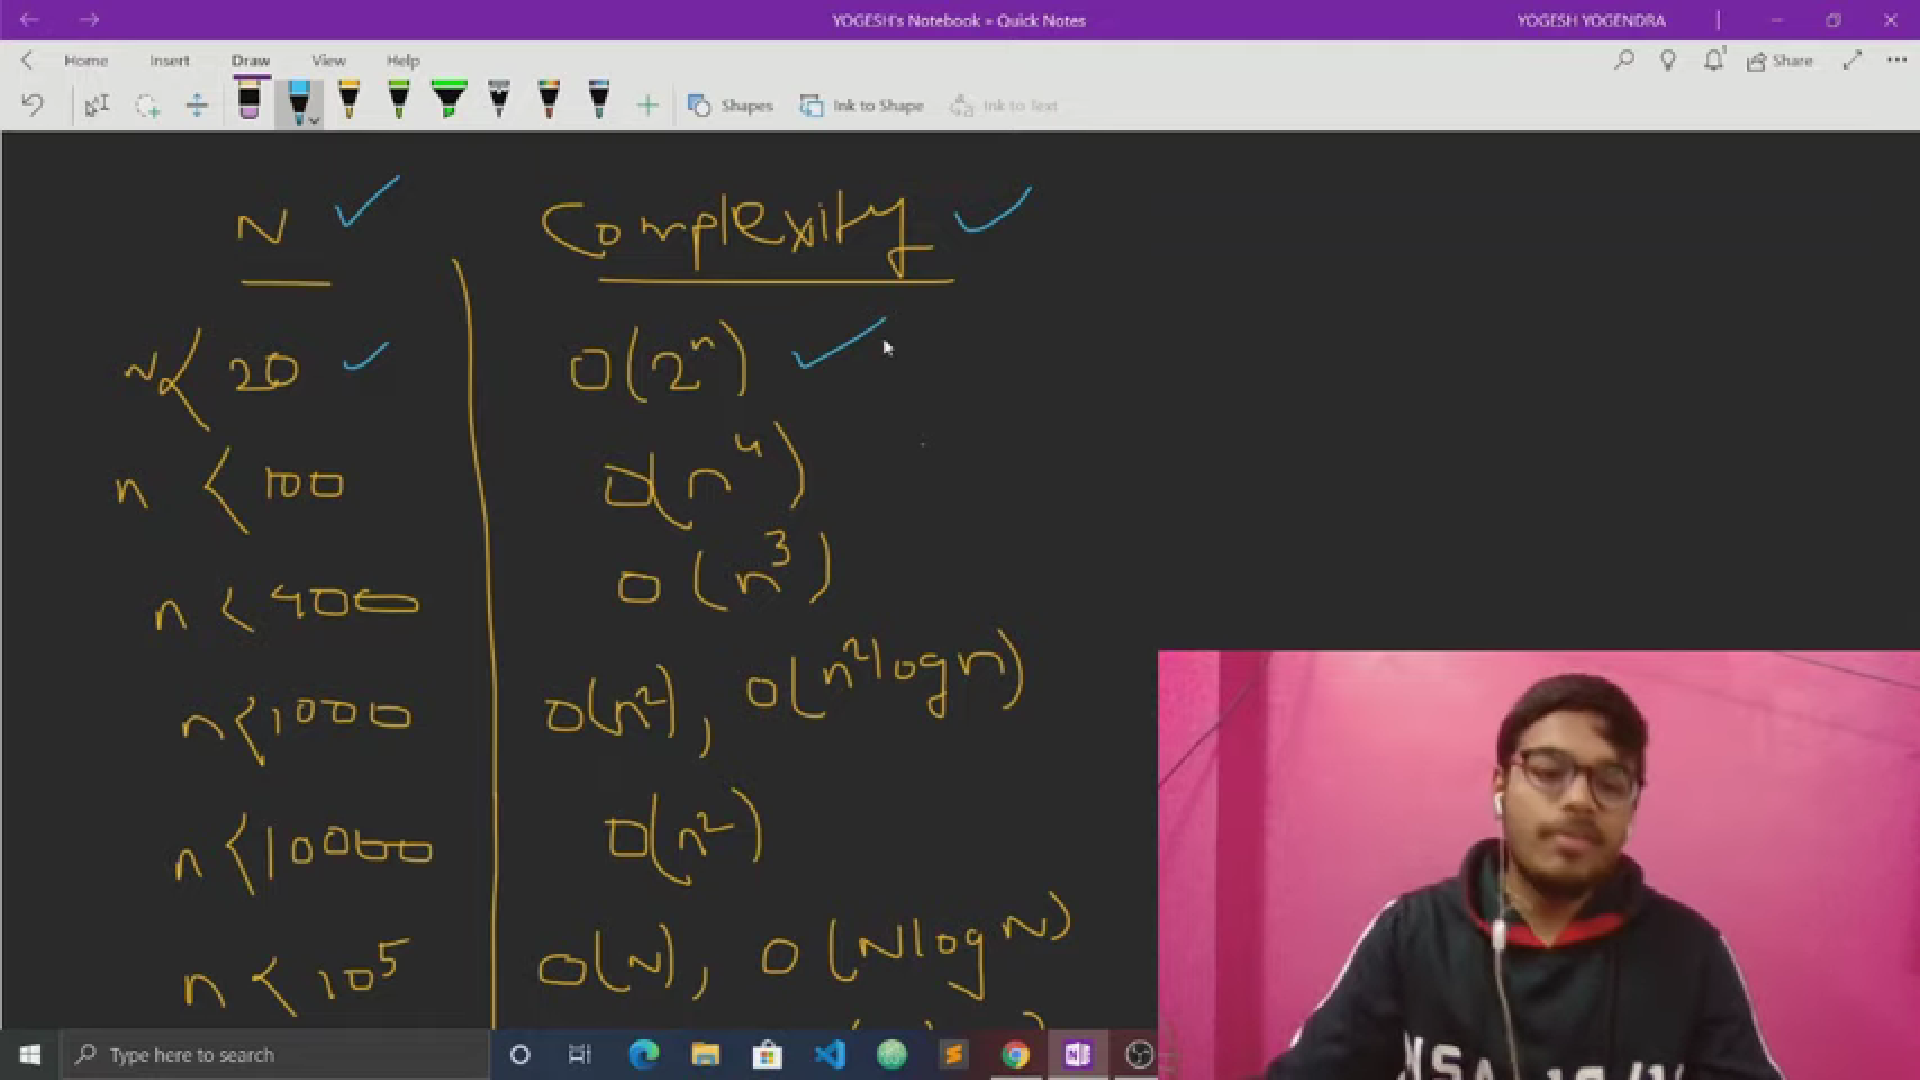 YOGESH's Notebook » Quick Notes
YOGESH YOGENDRA
Home Insert Draw View Help
Share
Shapes Ink to Shape Ink to Text
N Complexity
N < 20 O(2ⁿ)
n < 100 O(n⁴)
n < 400 O(n³)
n < 1000 O(n²), O(n² log n)
n < 10000 O(n²)
n < 10⁵ O(N), O(N log N)
Type here to search